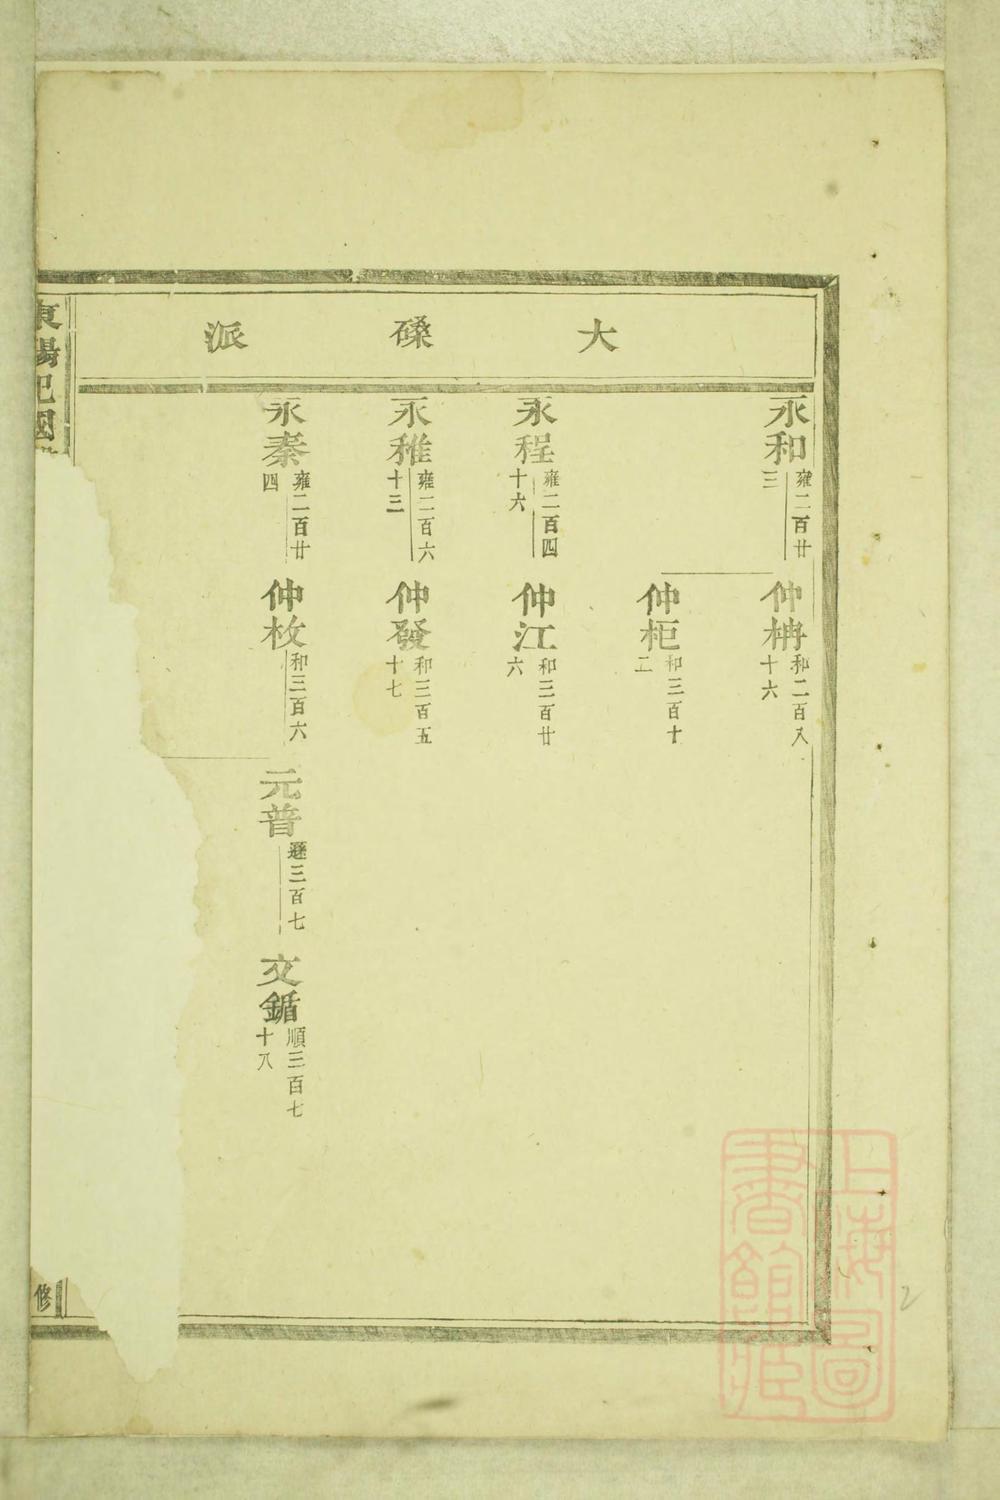 大磉派
永和 雍二百廿三
仲柟 和二百八十六
仲柜 和三百十二
永程 雍二百四十六
仲江 和三百廿六
永稚 雍二百六十三
仲發 和三百五十七
永秦 雍二百廿四
仲枚 和三百六
元普 遜三百七
文鍎 順三百七十八
東陽
國
修
上海圖書館藏
2